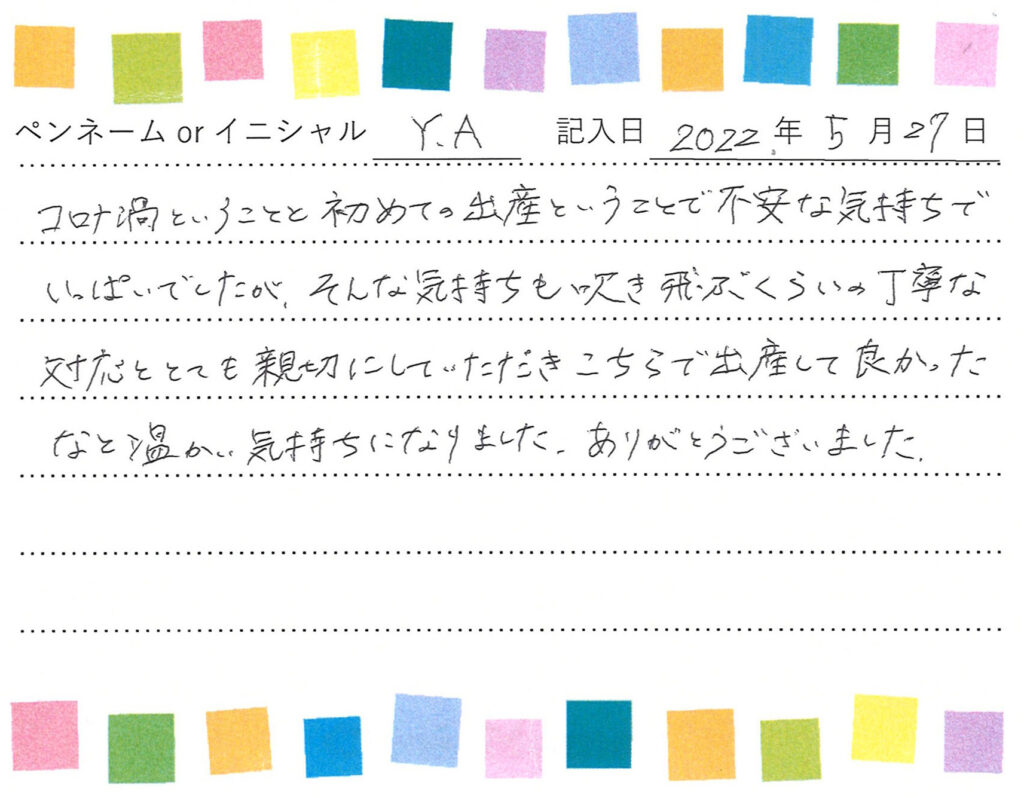 ペンネーム or イニシャル Y.A 記入日 2022年 5月 27日
コロナ渦ということと初めての出産ということで不安な気持ちで
いっぱいでしたが、そんな気持ちも吹き飛ぶくらいの丁寧な
対応ととても親切にしていただきこちらで出産して良かった
なと温かい気持ちになりました。ありがとうございました。